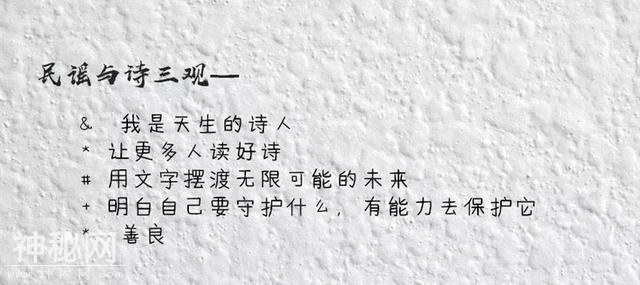 民谣与诗三观—
& 我是天生的诗人
* 让更多人读好诗
# 用文字摆渡无限可能的未来
+ 明白自己要守护什么，有能力去保护它
* 善良
神秘网